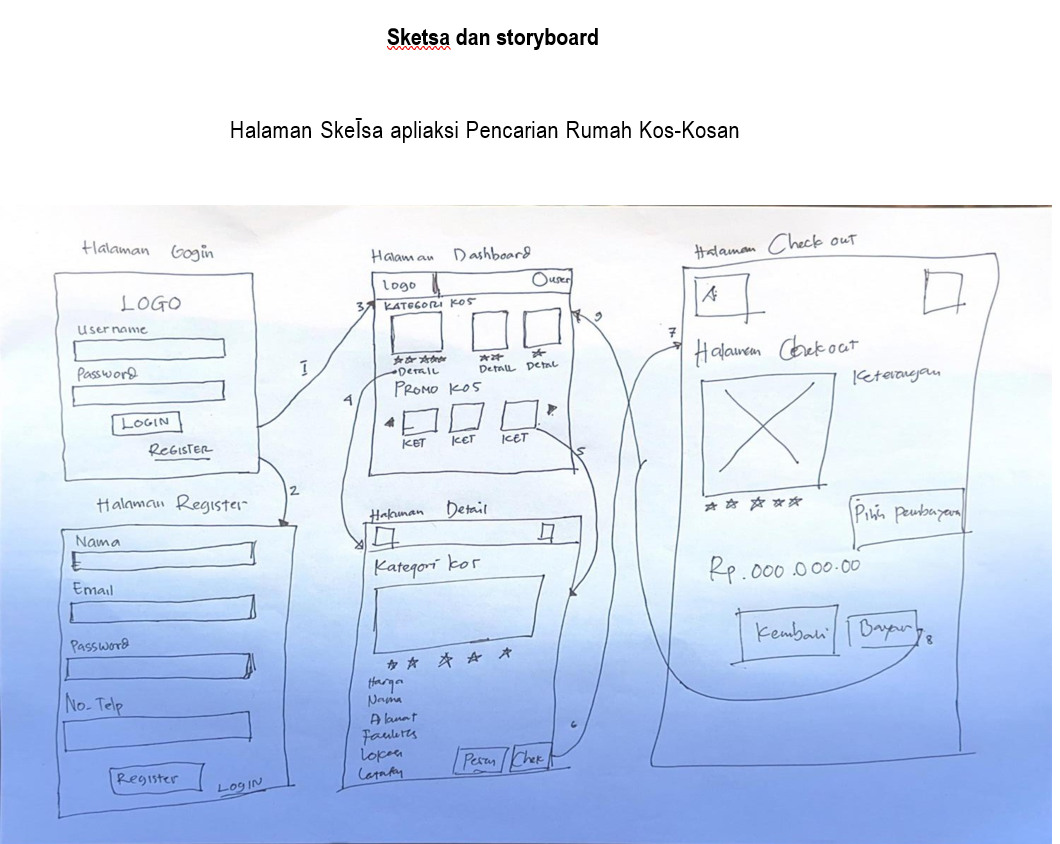 Sketsa dan storyboard
Halaman SkeĪsa apliaksi Pencarian Rumah Kos-Kosan
Halaman Login
LOGO
Username
Password
LOGIN
REGISTER
1
2
Halaman Register
Nama
Email
Password
No-Telp
Register
LOGIN
Halaman Dashboard
Logo
user
3
KATEGORI KOS
DETAIL
DETAIL
DETAIL
4
PROMO KOS
KET
KET
KET
5
Halaman Detail
Kategori kos
Harga
Nama
Alamat
Fasilitas
Lokasi
Pesan
Chek
6
Halaman Check out
7
9
Halaman Checkout
Keterangan
Pilih pembayaran
Rp.000.000.00
Kembali
Bayar
8